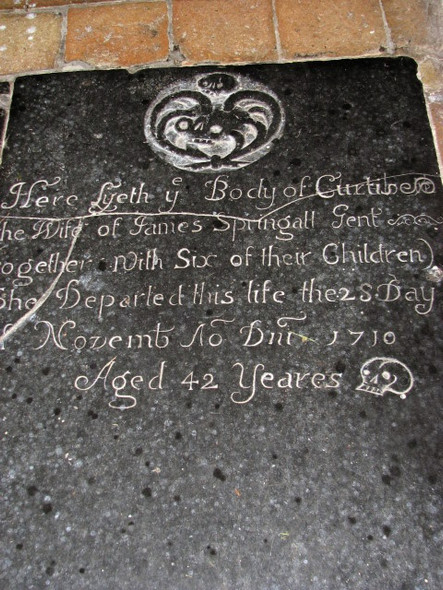 Here Lyeth yͤ Body of Curtibe
the Wife of James Springall Gent
together with Six of their Children)
She Departed this life the 28 Day
of Novemb Ao Dm 1710
Aged 42 Yeares